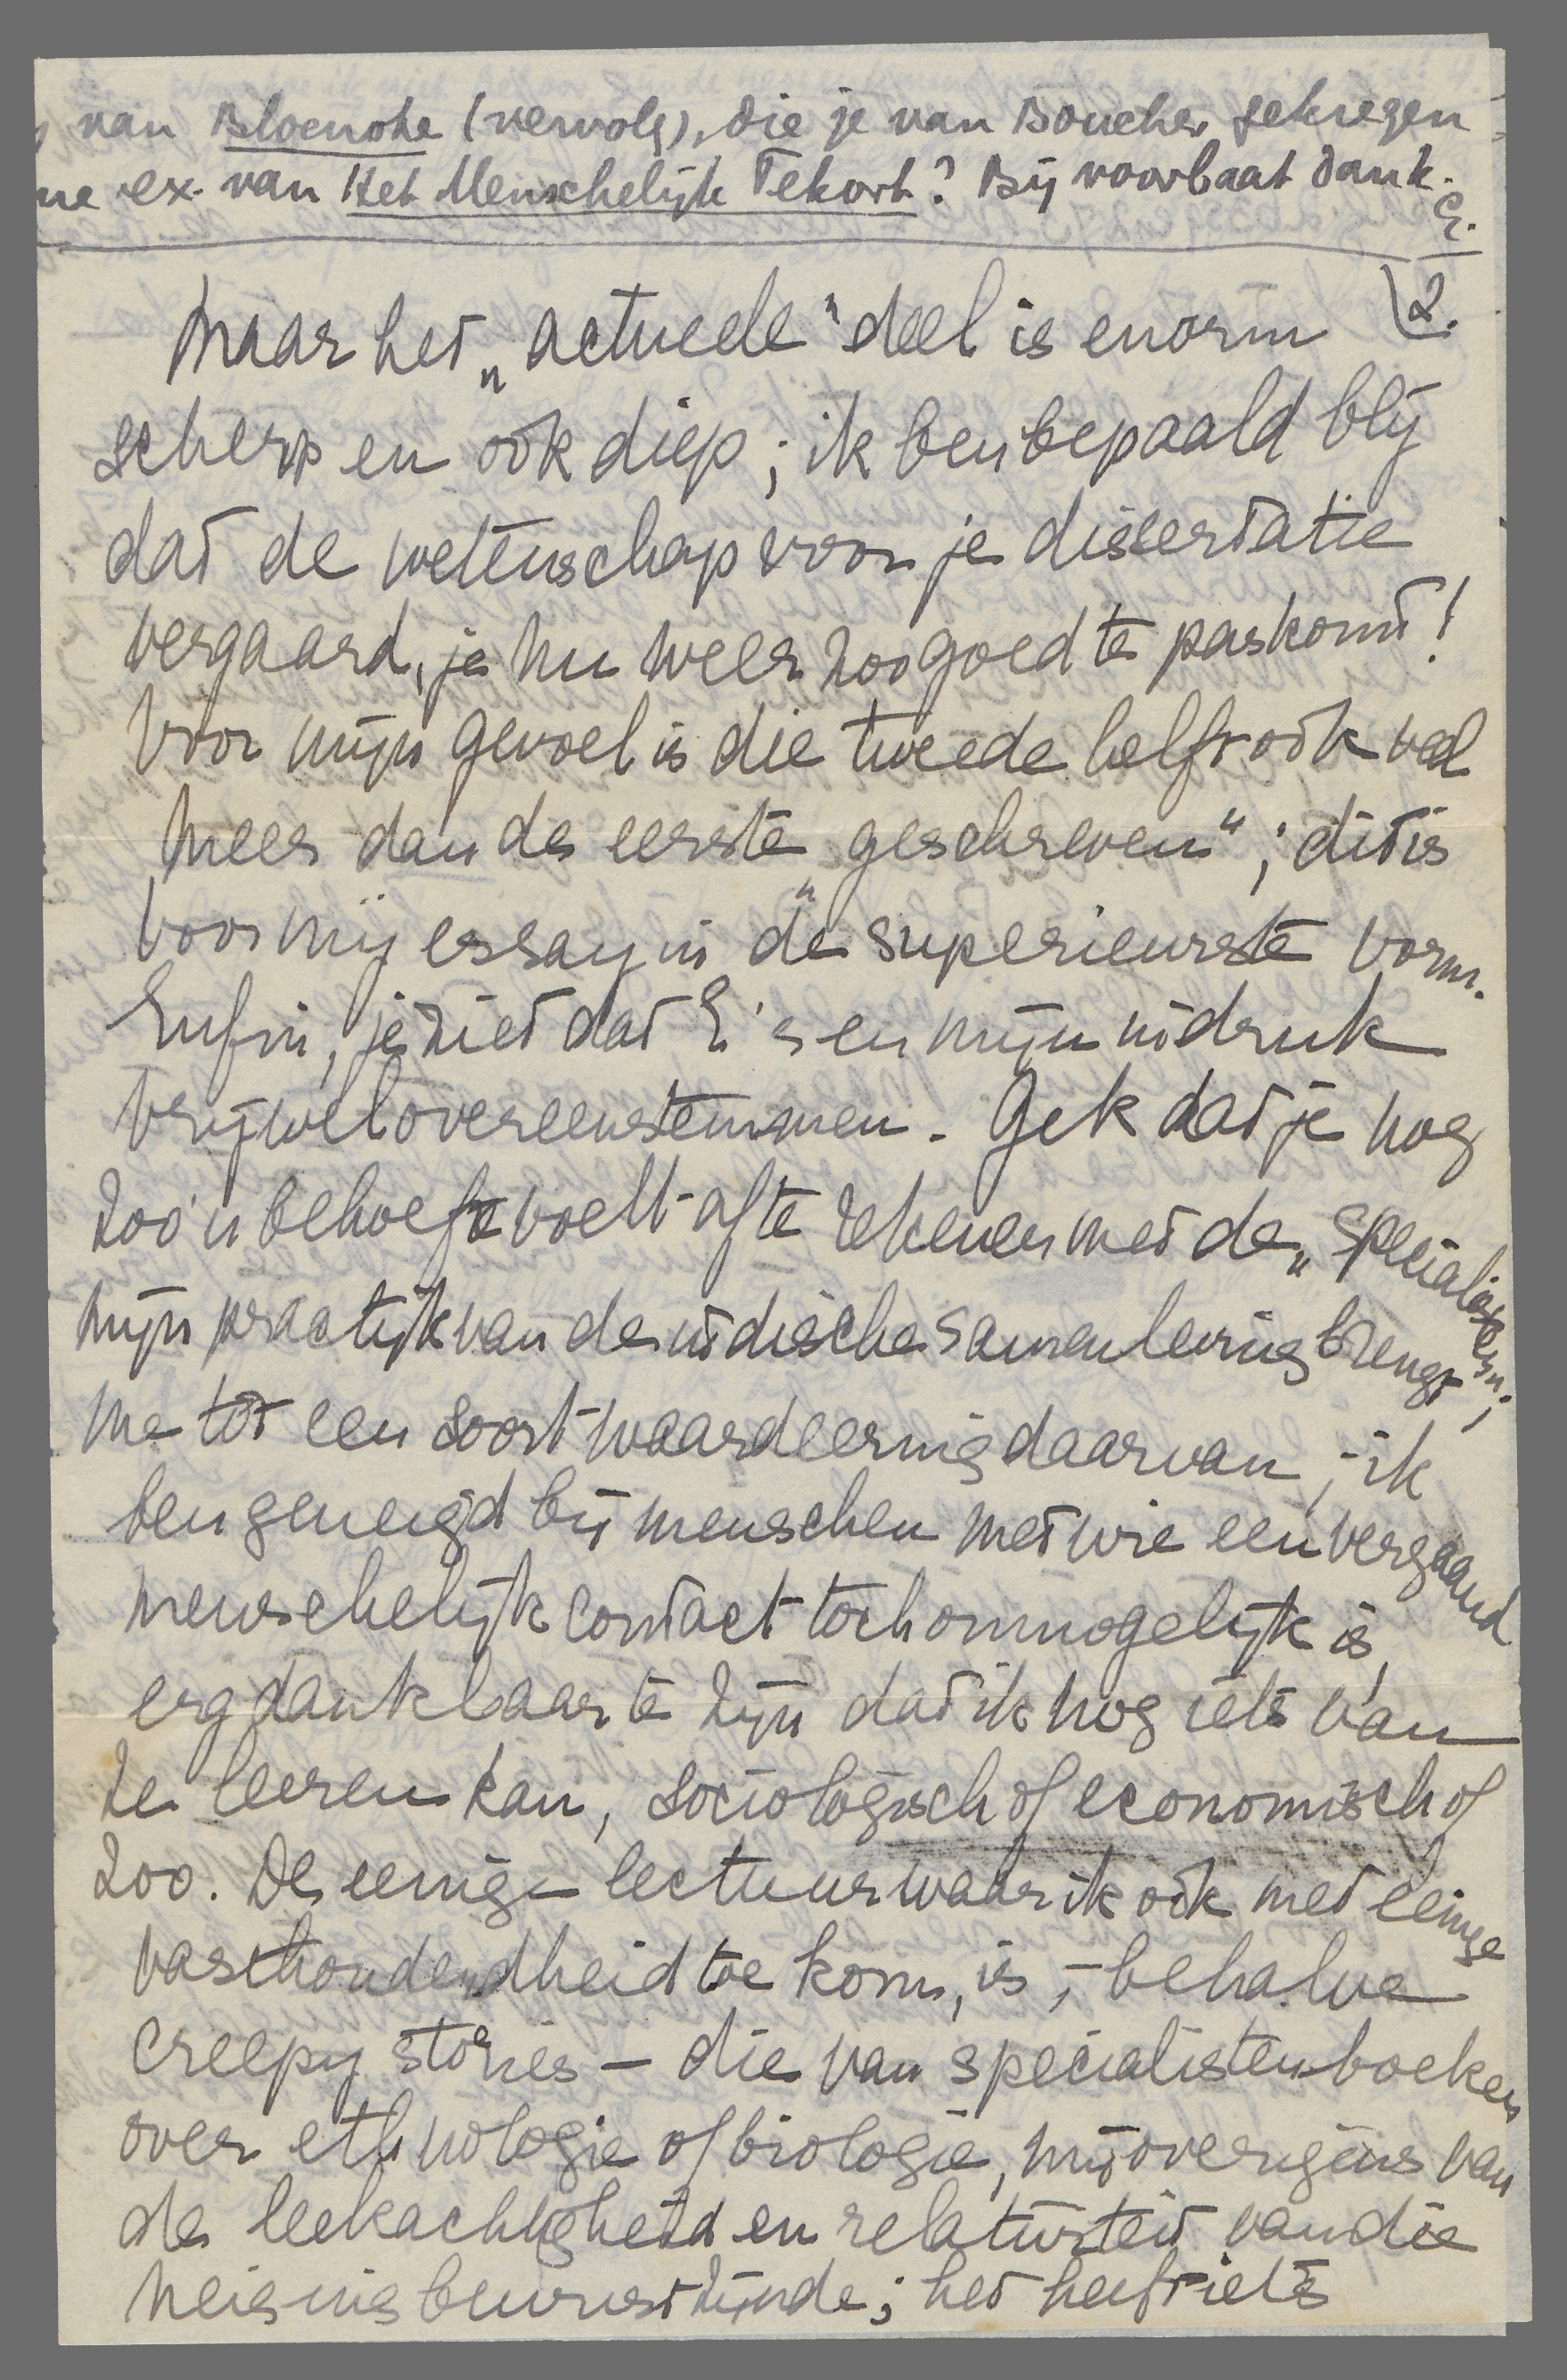 van Bloenote (vervolg), die je van Boucher gekregen
ne ex. van Het Menschelijk Tekort? Bij voorbaat dank.
E.
2.
Maar het „actueele" deel is enorm
scherp en ook diep; ik ben bepaald blij
dat de wetenschap voor je dissertatie
vergaard, je nu weer zoo goed te pas komt!
Voor mijn gevoel is die tweede helft ook veel
meer dan de eerste „geschreven"; dit is
voor mij essay in de superieurste vorm.
Enfin, je ziet dat E's en mijn indruk
vrijwel overeenstemmen. Gek dat je nog
zoo'n behoefte voelt af te rekenen met de „specialisten";
mijn practijk van de indische samenleving brengt
me tot een soort waardeering daarvan; ik
ben geneigd bij menschen met wie een vergaand
menschelijk contact toch onmogelijk is,
erg dankbaar te zijn dat ik nog iets van
ze leeren kan, sociologisch of economisch of
zoo. De eenige lectuur waar ik ook met eenige
vasthoudendheid toe kom, is, – behalve
creepy stories – die van specialistenboeken
over ethnologie of biologie, mij overigens van
de leekachtigheid en relativiteit van die
neiging bewust zijnde; het heeft iets